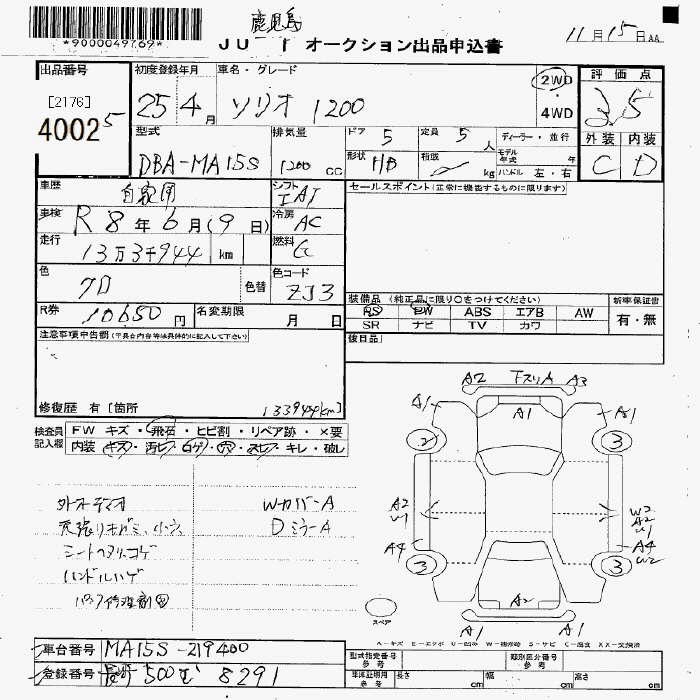 *9000049769*
鹿児島
JU オークション出品申込書
11月15日
出品番号
[2176]
40025
初度登録年月
25 4月
車名・グレード
ソリオ 1200
2WD
・
4WD
評価点
3.5
外装 内装
C D
型式
DBA-MA15S
排気量
1200 CC
ドア 5
定員 5人
ディーラー・並行
形状 HB
積載 kg
モデル年式 年
ハンドル 左・右
車歴 自家用
シフト IAT
車検 R 8年 6月(9日)
冷房 AC
走行 13万3千944 km
燃料 G
色 クロ
色替
色コード ZJ3
R券 10650円
名変期限 月 日
セールスポイント(正常に機能するものに限ります)
装備品(純正品に限り○をつけてください)
PS PW ABS エアB AW
SR ナビ TV カワ
新車保証書
有・無
後日品
注意事項申告欄(不具合内容等は具体的に記入して下さい)
修復歴 有[箇所
133944km]
検査員記入欄
FW キズ・飛石・ヒビ割・リペア跡・×要
内装 キズ・汚レ・コゲ・穴・スレ・キレ・破レ
外オーディオ
天張リキガミ、小穴
シートヘタリ、コゲ
ハンドルハゲ
WカバーA
DミラーA
A2 下スリA A3
A1 A1 A1
2 3
A2 W1
W2 A2 W1
A4
A4 W2
3 3
A2
A1 A1
スペア
A-キズ E-エクボ U-凹み W-補修跡 S-サビ C-腐食 XX-交換済
車台番号 MA15S-219400
登録番号 長野 500 8291
型式指定番号 参考
類別区分番号 参考
車庫証明用 参考 長さ cm 幅 cm 高さ cm